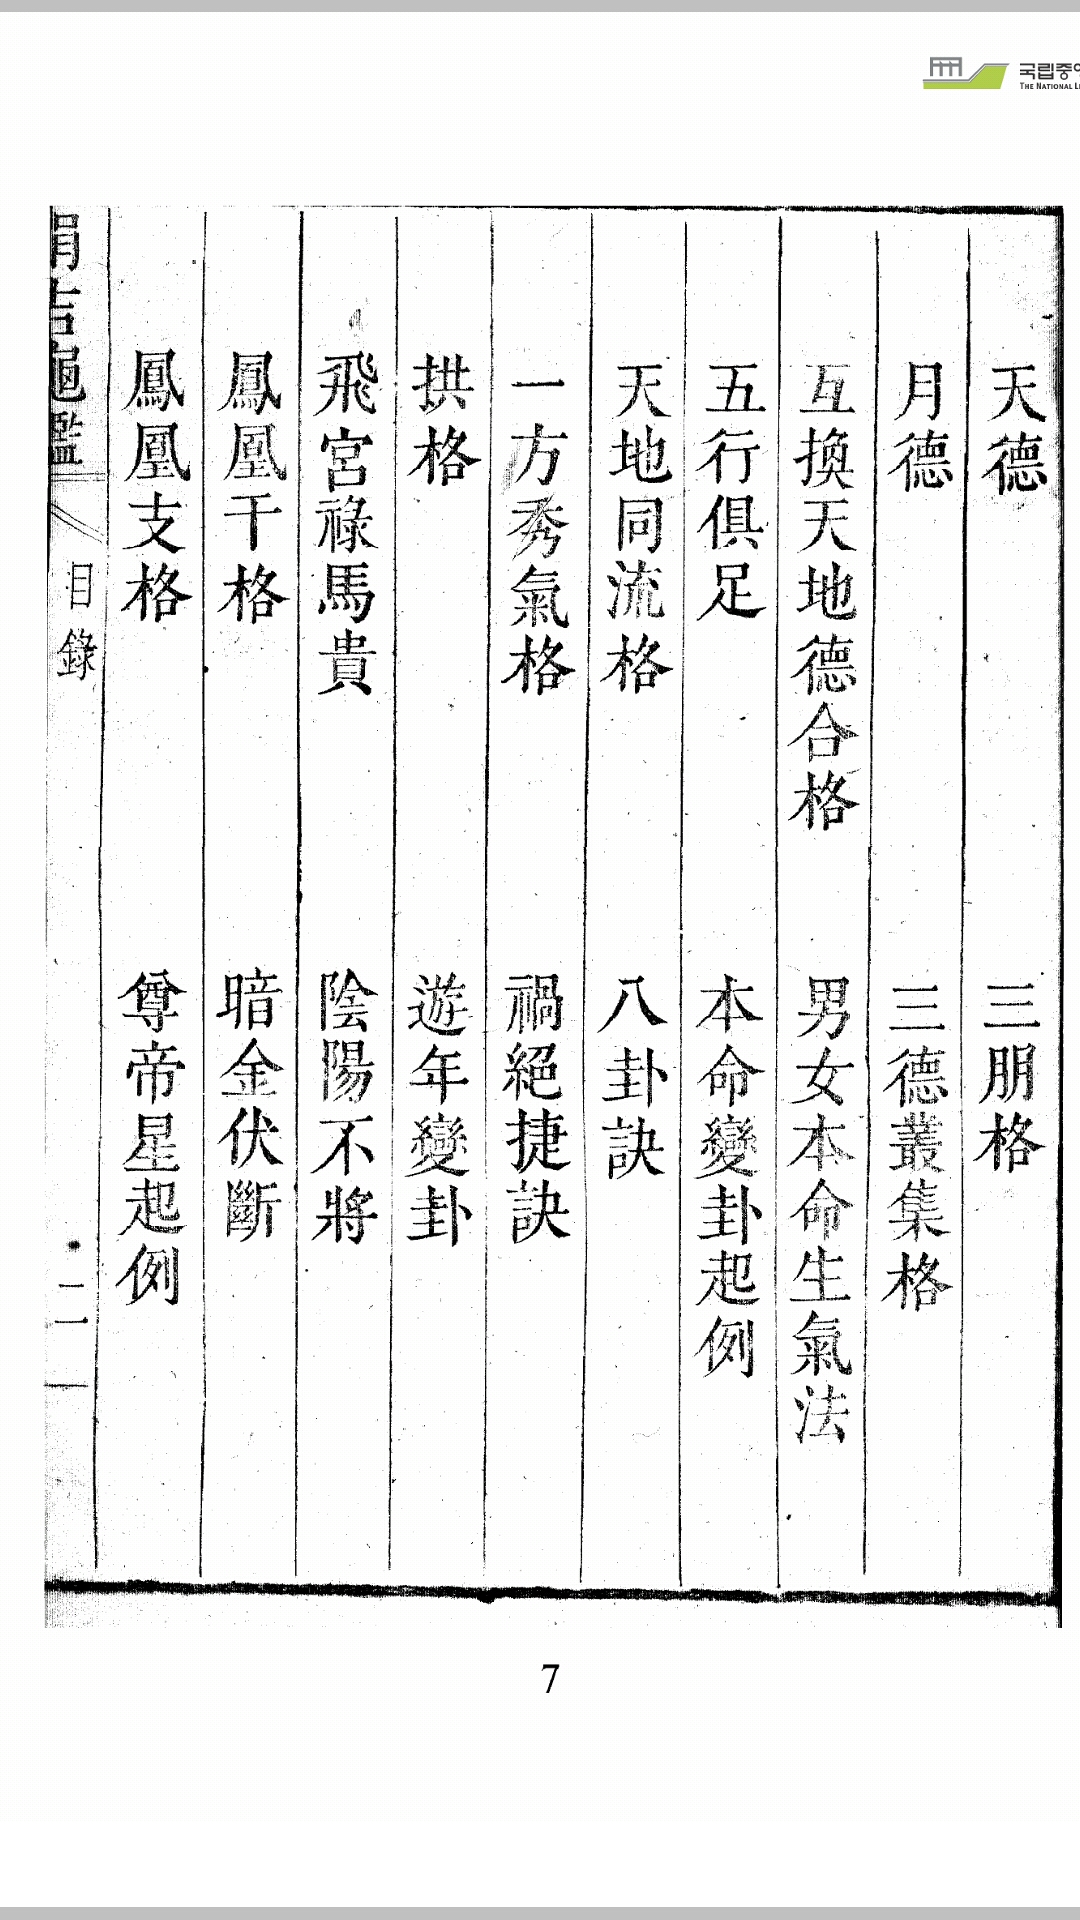 국립중앙
THE NATIONAL LI
天德 三朋格
月德 三德叢集格
互換天地德合格 男女本命生氣法
五行俱足 本命變卦起例
天地同流格 八卦訣
一方秀氣格 禍絕捷訣
拱格 遊年變卦
飛宮祿馬貴 陰陽不將
鳳凰干格 暗金伏斷
鳳凰支格 尊帝星起例
涓吉龜鑑 目錄 二
7